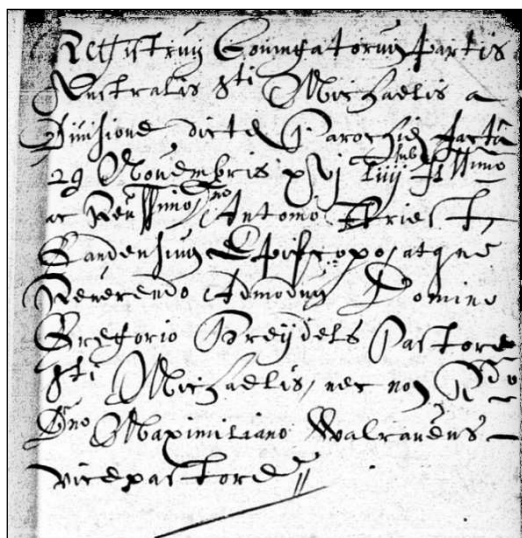 Registrum Coniugatorum partis
Australis Sti Michaelis a
Diuisione dictæ Parochiæ facta
29 Nouembris xvj Liiij sub Illssimo
ac Reussimo Dno Antonio Triest,
Gandensium Episcopo, atque
Reuerendo Admodum Domino
Gregorio Breydels Pastore
Sti Michaelis, nec non Rdo
Dno Maximiliano Walrauens
vicepastore